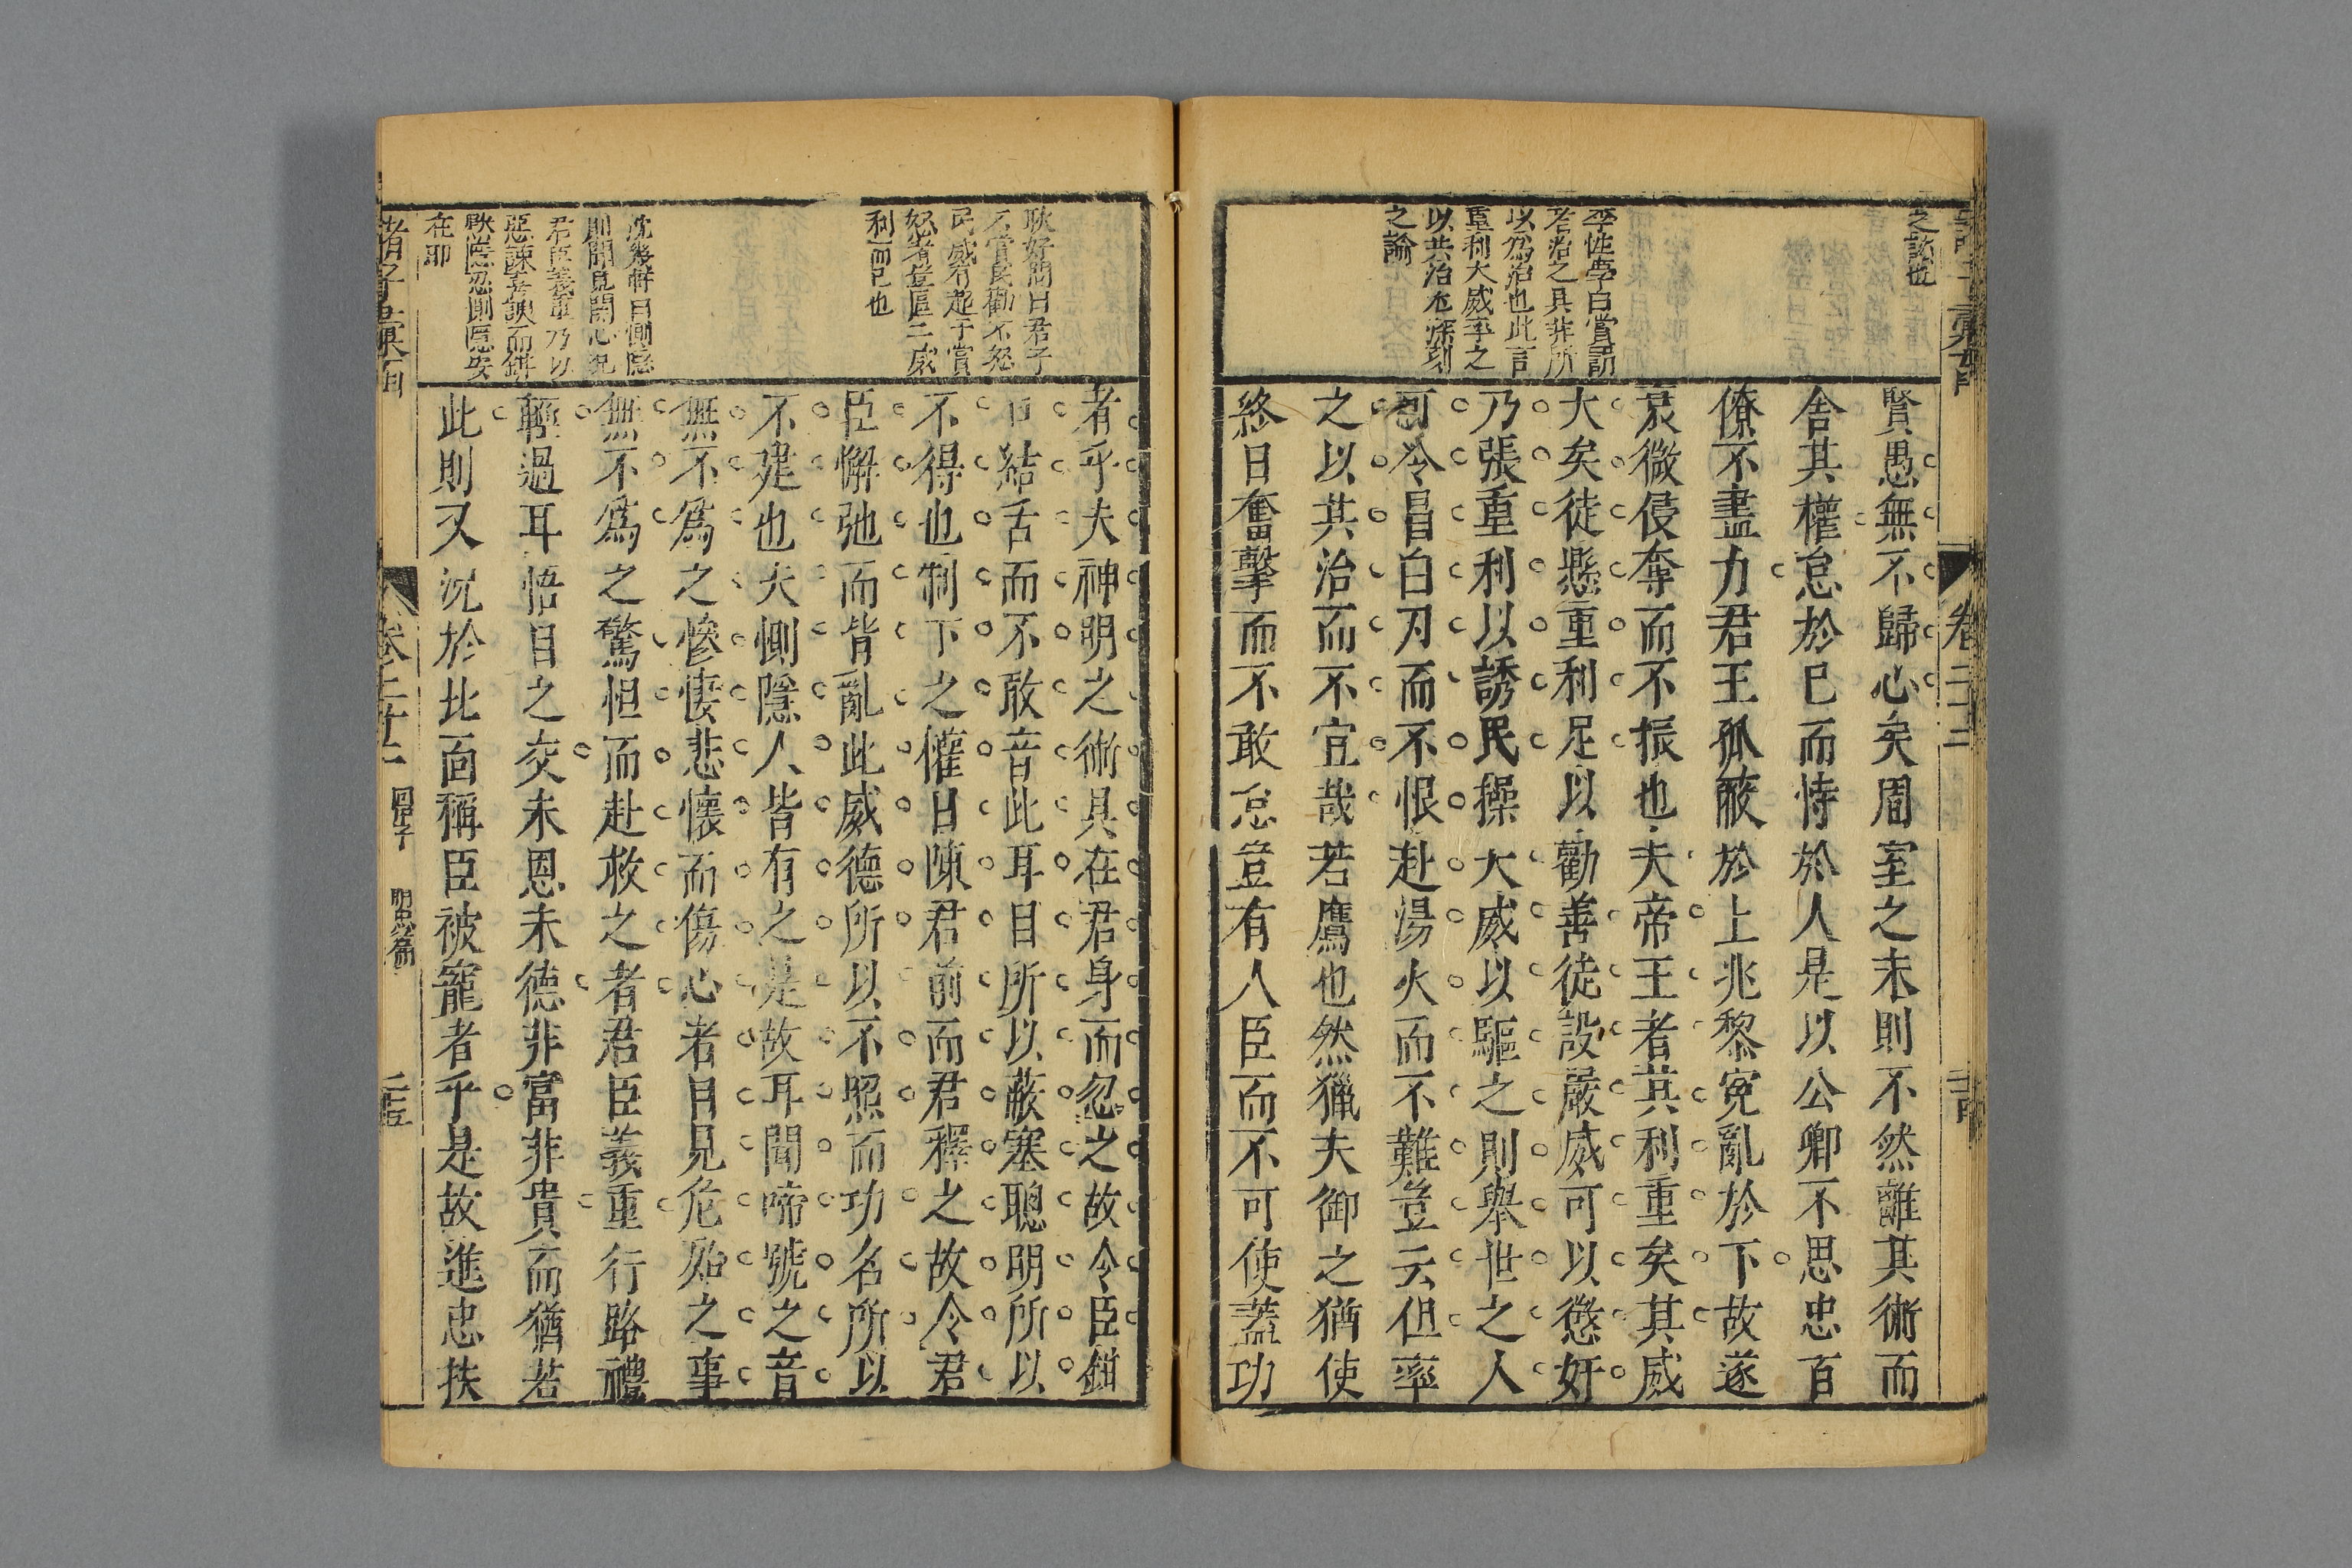 之談也
李性學曰賞罰
者治之具非所
以為治也此言
重利大威率之
以共治尤深刻
之論
賢愚無不歸心矣周室之末則不然離其術而
舍其權怠於已而恃於人是以公卿不思忠百
僚不盡力君王孤蔽於上兆黎寃亂於下故遂
衰微侵奪而不振也夫帝王者其利重矣其威
大矣徒懸重利足以勸善徒設嚴威可以懲奸
乃張重利以誘民操大威以驅之則舉世之人
可令冒白刃而不恨赴湯火而不難豈云但率
之以其治而不宜哉若鷹也然獵夫御之猶使
終日奮擊而不敢怠豈有人臣而不可使葢功
耿好問曰君子
不賞民勸不怒
民威有起于賞
怒者豈區二威
利而已也
沈幾軒曰惻隱
則聞見關心况
君臣義重乃以
惡諫喜諛而鉗
默隱忍惻隱安
在耶
者乎夫神明之術具在君身而忽之故令臣鉗
口結舌而不敢音此耳目所以蔽塞聰明所以
不得也制下之權日陳君前而君釋之故令君
臣懈弛而背亂此威德所以不照而功名所以
不建也夫惻隱人皆有之是故耳聞啼號之音
無不爲之慘悽悲懷而傷心者目見危殆之事
無不爲之驚怛而赴救之者君臣義重行路禮
輕過耳悟目之交未恩未德非富非貴而猶若
此則又况於北面稱臣被寵者乎是故進忠扶
諸子彙函
卷二十二
回中子
明忠篇
二十五